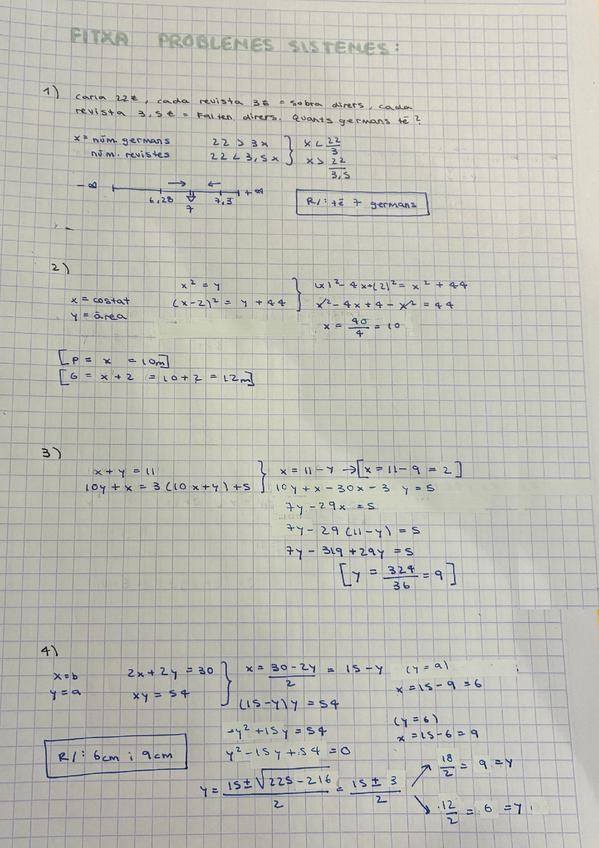 FITXA PROBLEMES SISTEMES:
1) carla 22€, cada revista 3€ = sobra diners, cada
revista 3,5€ = Falten diners. Quants germans té?
x = núm. germans 22 > 3x } x < 22/3
núm. revistes 22 < 3,5x } x > 22/3,5
-∞ 6,28 7 7,3 +∞
R/: té 7 germans
2)
x² = y } (x)² - 4x + (2)² = x² + 44
x = costat (x-2)² = y + 44 x² - 4x + 4 - x² = 44
y = àrea x = 40/4 = 10
[P = x = 10m]
[G = x + 2 = 10 + 2 = 12m]
3)
x + y = 11 } x = 11 - y → [x = 11 - 9 = 2]
10y + x = 3(10x + y) + 5 } 10y + x - 30x - 3y = 5
7y - 29x = 5
7y - 29(11 - y) = 5
7y - 319 + 29y = 5
[y = 324/36 = 9]
4)
x = b 2x + 2y = 30 } x = 30 - 2y/2 = 15 - y (y = 9)
y = a xy = 54 x = 15 - 9 = 6
(15 - y)y = 54
(y = 6)
-y² + 15y = 54 x = 15 - 6 = 9
y² - 15y + 54 = 0
R/: 6cm i 9cm
y = 15 ± √225 - 216/2 = 15 ± 3/2
18/2 = 9 = y
12/2 = 6 = y